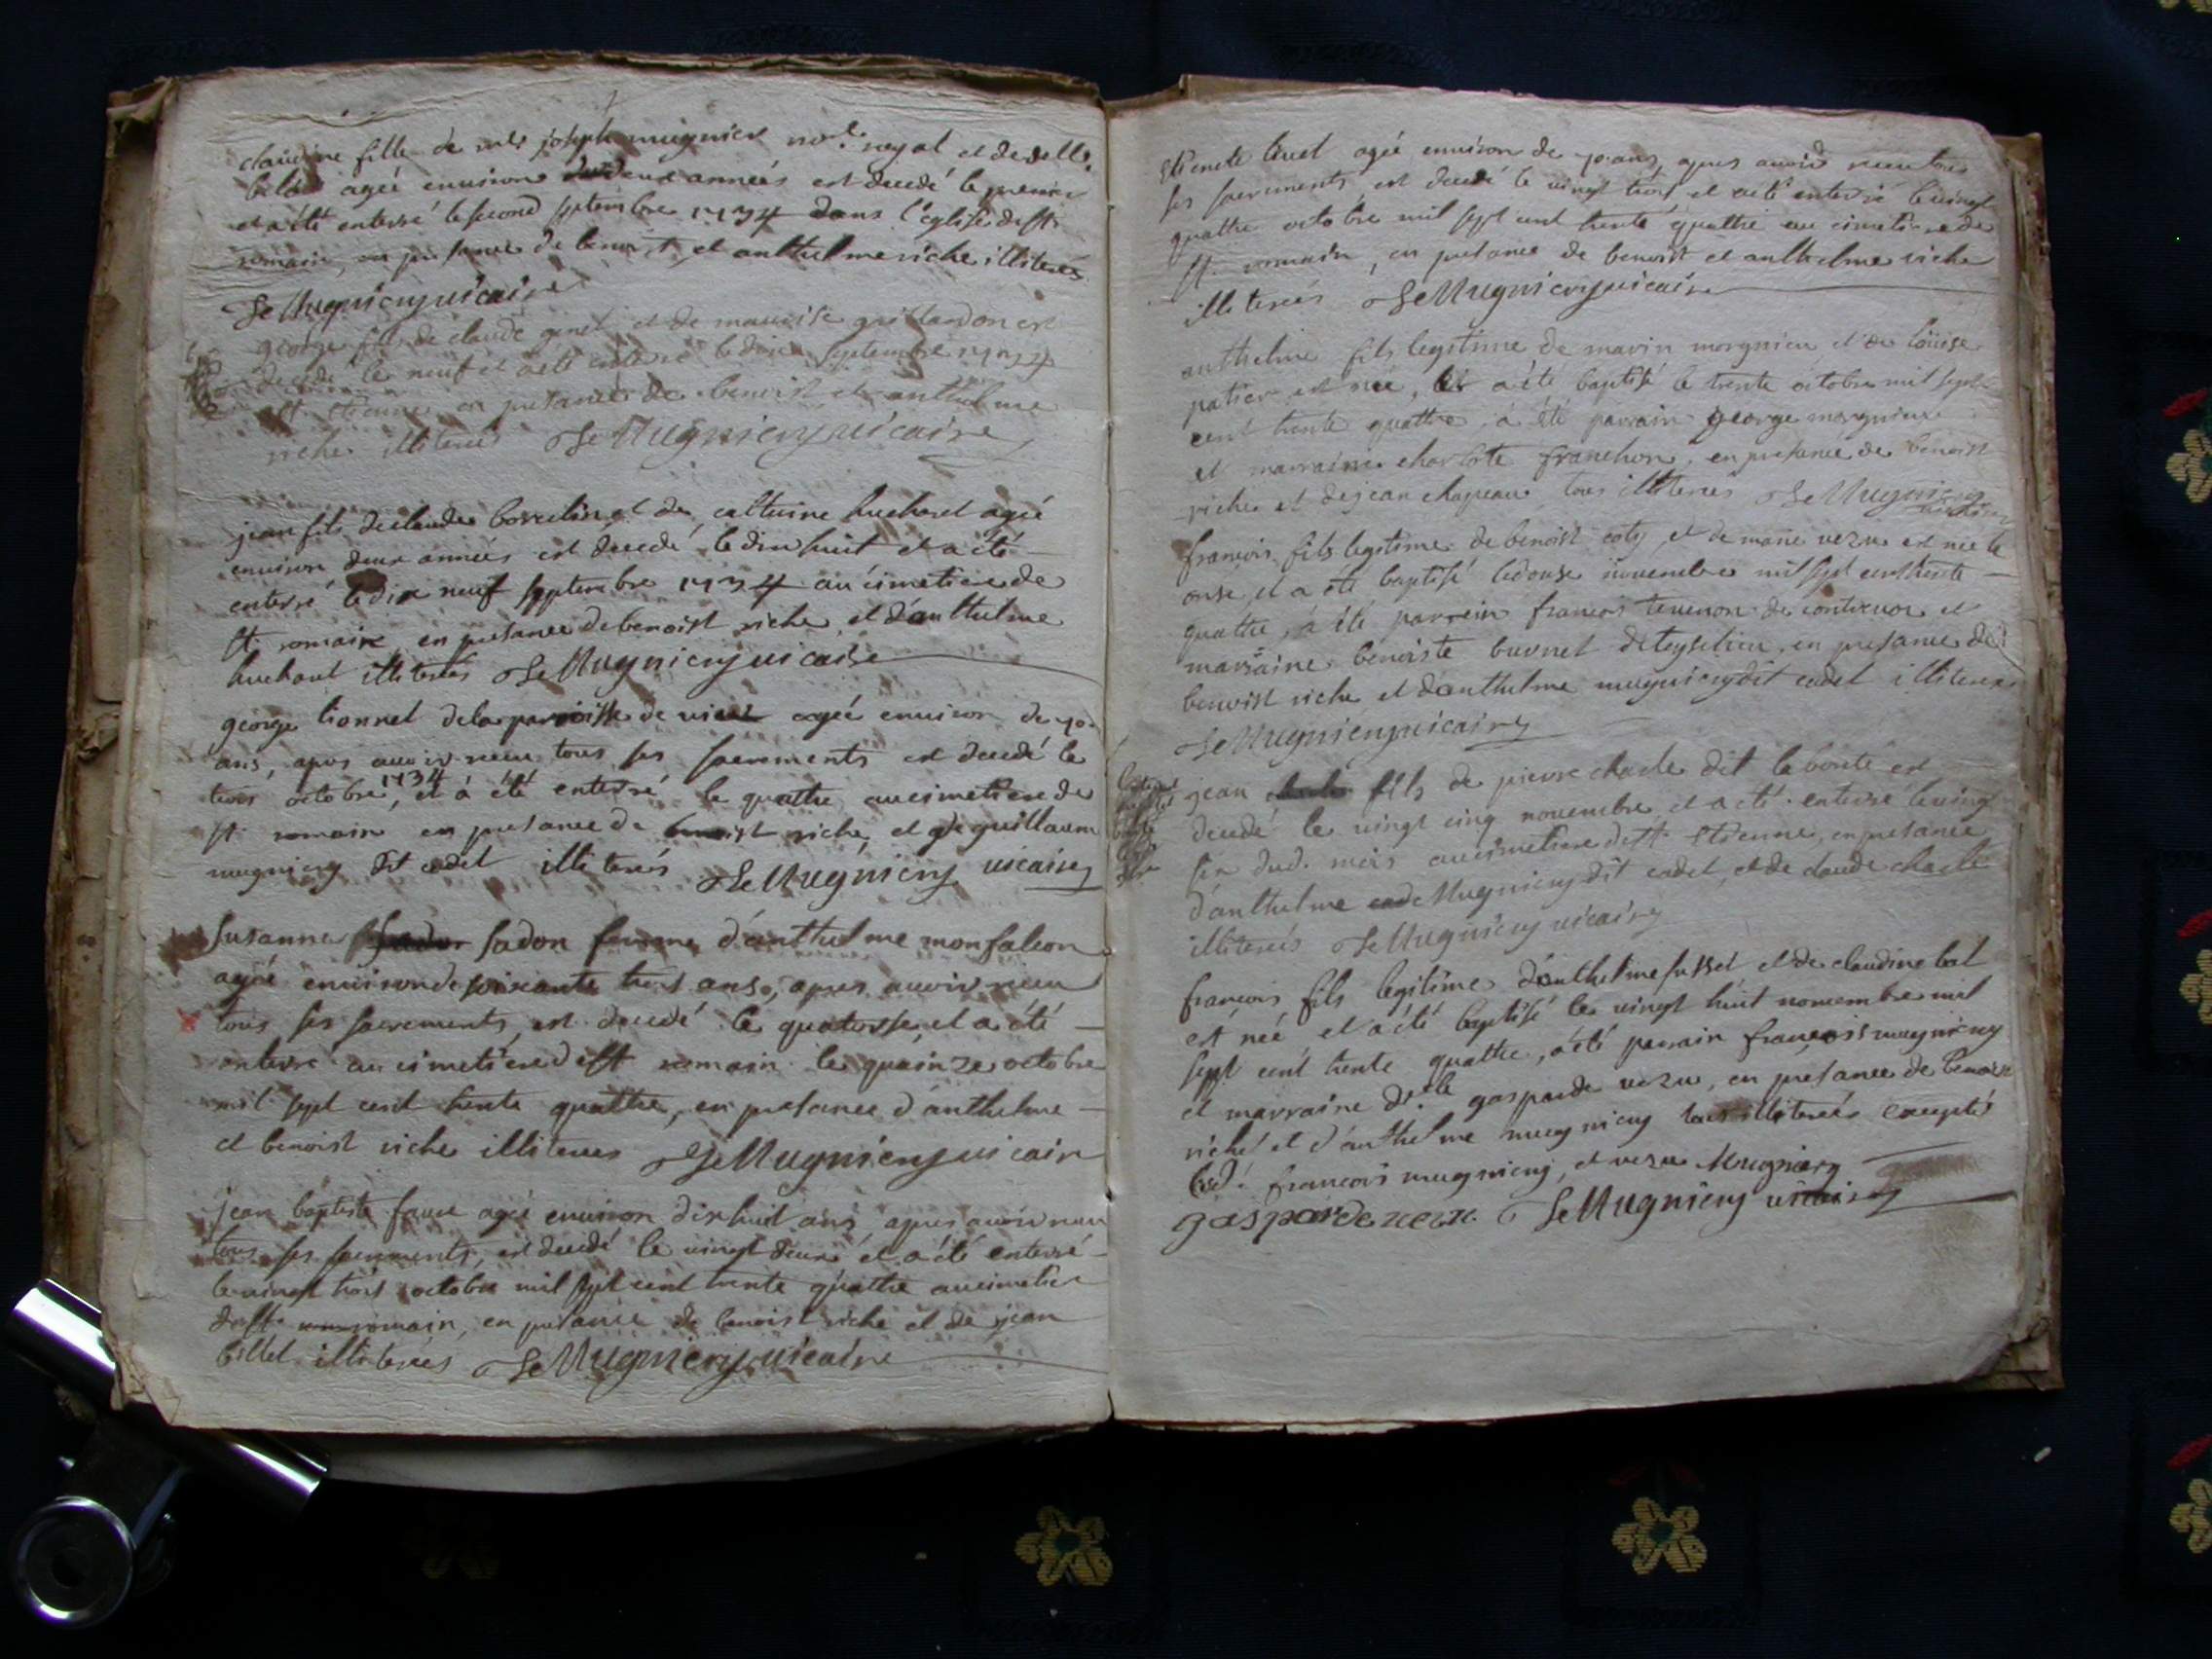 claudine fille de mre joseph mugnier not. royal et de delle
agée enuiron deux années est decedé le premier
et a été enterré le second septembre 1734 dans l'eglise de st.
romain, en presance de benoist et anthelme riche illiterés
Mugnieryuicaire
george fils de claude ginet et de maurise est
decedé le neuf et a eté enterré le dix septembre 1734
st. etienne en presance de benoist et anthelme
riche illiterés Mugnieryuicaire
jean fils de claude et de catherine huchard agée
enuiron deux années est decedé le dix huit et a été
enterré le dix neuf septembre 1734 au cimetiere de
st. romain en presance de benoist riche et d'anthelme
huchard illiterés Mugnieryuicaire
george lionnet de la paroisse de uieu agée enuiron de 70
ans, apres auoir receu tous ses sacrements est decedé le
trois octobre 1734, et à été enterré le quattre au cimetiere de
st. romain en presance de benoist riche, et de guillaume
mugniery dit cadet illiterés Mugniery uicaire
Susanne sadon femme d'anthelme monfalcon
agée enuiron de soixante trois ans, apres auoir receu
tous ses sacrements, est decedé le quatorse et a été
enterré au cimetiere de st romain le quainze octobre
mil sept cent trente quattre, en presance d'anthelme
et benoist riche illiterés Mugnieryuicaire
jean baptiste faure agée enuiron dix huit ans apres auoir receu
tous ses sacrements, est decedé le uingt deux et a été enterré
le uingt trois octobre mil sept cent trente quattre au cimetiere
de st. romain, en presance de benoist riche et de jean
billet illiterés Mugnieryuicaire
Etienete liuet agée enuiron de 70 ans, apres auoir receu tous
ses sacrements, est decedé le uingt trois, et a eté enterré le uingt
quattre octobre mil sept cent trente quattre au cimetiere de
st. romain, en presance de benoist et anthelme riche
illiterés Mugnieryuicaire
anthelme fils legitime de marin morgnieu et de loüise
patier est née, et a été baptisé le trente octobre mil sept
cent trente quattre, à été parrain george morgnieu
et marraine charlote franchon, en presance de benoist
riche et de jean chapeau tous illiterés Mugniery
uicaire
francois fils legitime de benoist coty et de marie uezu est née le
onse, et a été baptisé le douse nouembre mil sept cent trente
quattre, à été parrein francois teuenon de contreuor et
marraine benoiste burnet de teyselieu, en presance de
benoist riche et d'anthelme mugniery dit cadet illiterés
Mugnieryuicaire
jean fils de pierre charle dit la bonté est
decedé le uingt cinq nouembre, et a été enterré le uingt
six dud. mois au cimetiere de st. etienne, en presance
d'anthelme Mugniery dit cadet, et de claude charle
illiterés Mugniery uicaire
francois fils legitime d'anthelme fusset et de claudine bal
est née et a été baptisé le uingt huit nouembre mil
sept cent trente quattre, a été parrain francois mugniery
et marraine delle gasparde uezu, en presance de benoist
riche et d'anthelme mugniery tous illiterés excepté
led. francois mugniery, et uezu Mugniery
gasparde uezu Mugniery uicaire